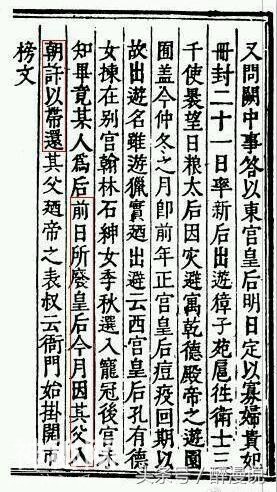 又問闕中事答以東宫皇后明日定以寡婦貴妃
冊封二十一日率新后出遊獐子苑扈從衛士三
千使褁望日粮太后因灾避寓乾德殿帝之遊園
囿盖今仲冬之月即前年正宫皇后痘疫回期以
故出遊名雖遊獵實廼出避云西宫皇后孔有德
女揀在别宫翰林石紳女季秋選入寵冠後宫未
知畢竟某人為后前日所廢皇后今月因其父入
朝許以帶還其父廼帝之表叔云衙門始掛開市
榜文
头条号